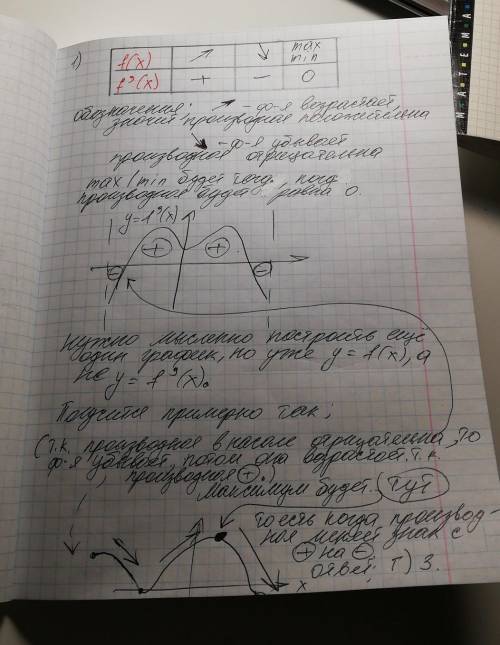 1)
f(x) ↗ ↘ max min
f'(x) + − 0
обозначения: ↗ - ф-я возрастает,
значит производная положительна
↘ - ф-я убывает
производная отрицательна
max/min будет тогда, когд
производная будет равна 0.
y=f'(x)
+ +
− −
Нужно мысленно построить ещё
один график, но уже y=f(x), а
не y=f'(x).
Получится примерно так:
(т.к. производная в начале отрицательна, то
ф-я убывает, потом она возрастает т.к.
производная +.)
Максимум будет тут
то есть когда производ-
ная меняет знак с
+ на −
ответ: Г) 3.
x
МАТЕМА